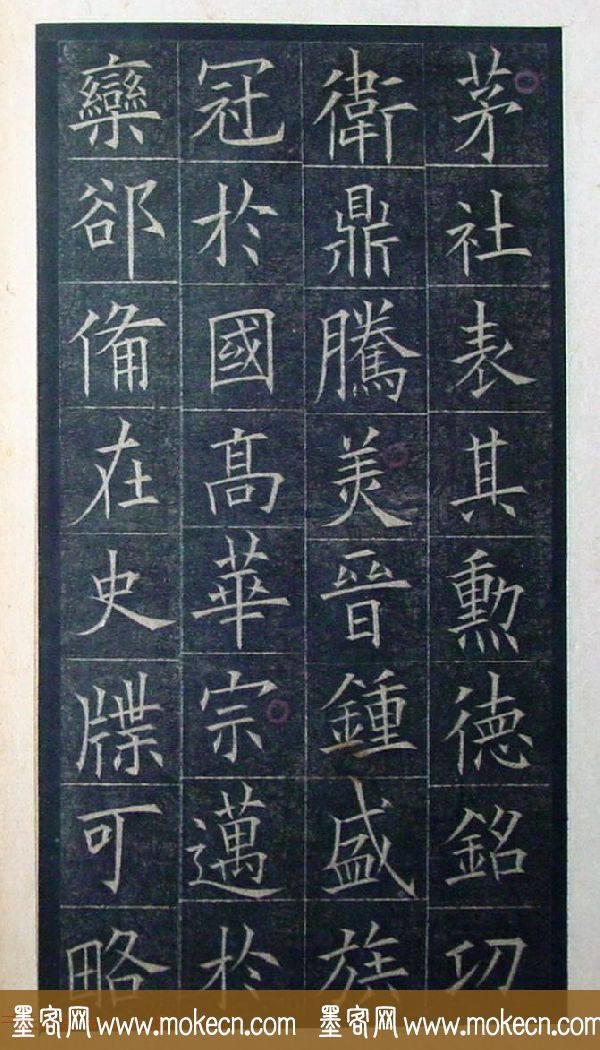 茅社表其勲德銘功
衛鼎騰美晉鍾盛族
冠於國髙華宗邁於
欒郤備在史牒可略
墨客网 www.mokecn.com 墨客网 www.mokecn.com